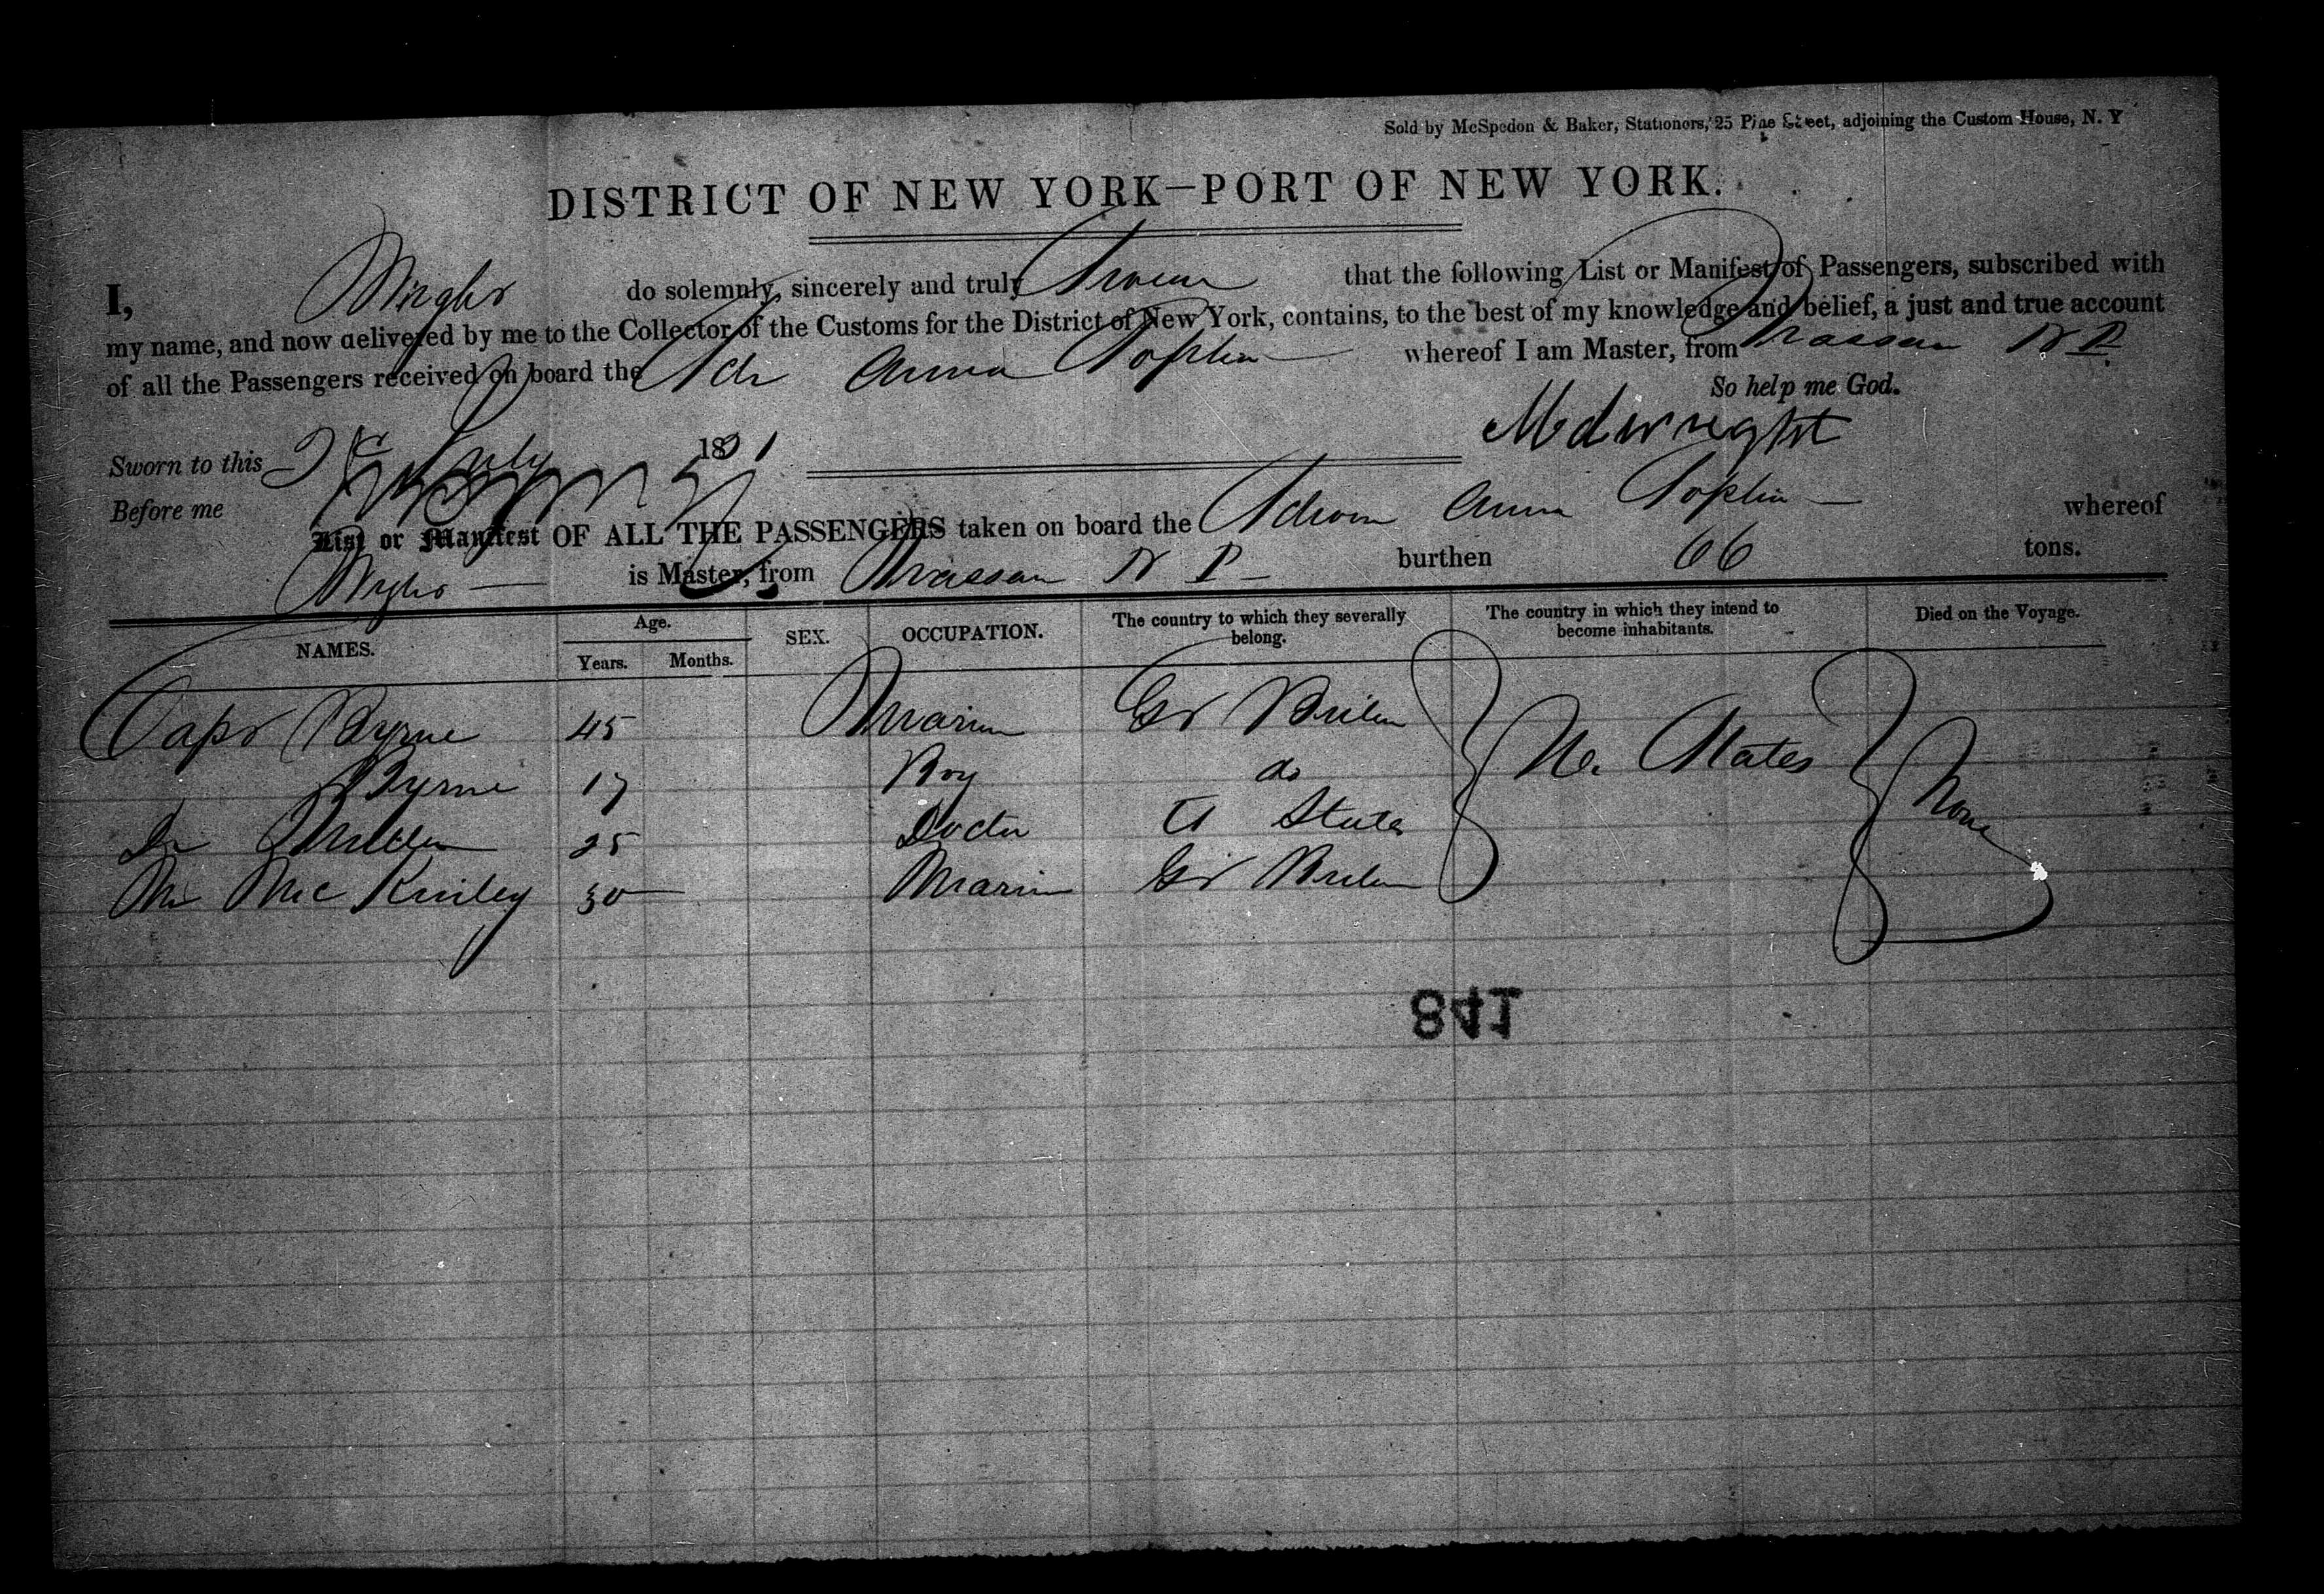 Sold by McSpedon & Baker, Stationers, 25 Pine Street, adjoining the Custom House, N. Y
DISTRICT OF NEW YORK—PORT OF NEW YORK.
I, Wright do solemnly, sincerely and truly Swear that the following List or Manifest of Passengers, subscribed with
my name, and now delivered by me to the Collector of the Customs for the District of New York, contains, to the best of my knowledge and belief, a just and true account
of all the Passengers received on board the Schr Anna Sophia whereof I am Master, from Nassau N P
So help me God.
Sworn to this July 1851
M d wright
Before me
List or Manifest OF ALL THE PASSENGERS taken on board the Schoon Anna Sophia whereof
Wright is Master, from Nassau N P burthen 66 tons.
NAMES. Age. Years. Months. SEX. OCCUPATION. The country to which they severally belong. The country in which they intend to become inhabitants. Died on the Voyage.
Capt Byrne 45 Mariner Gt Britain
Byrne 17 Boy do U. States None
Dr 25 Doctor U States
Mr Mc Kinley 30 Mariner Gt Britain
841